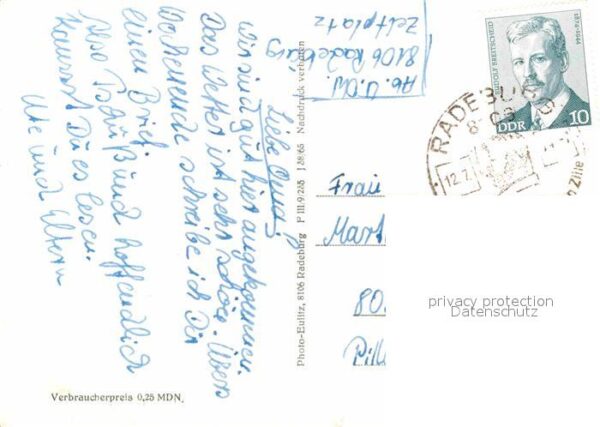 Liebe Oma!
wir sind gut hier angekommen.
Das Wetter ist sehr schön. Übers
Wochenende schreibe ich Dir
einen Brief.
Also Tschüß und hoffentlich
kannst Du es lesen.
Ute und Eltern
8106 Radeburg
Zeltplatz
RUDOLF BREITSCHEID
1874-1944
DDR
10
RADEBU
8
12.7.
Zille
Frau
Mart
80
Pill
Photo-Eulitz, 8106 Radeburg P III.9.235 J 38/65 Nachdruck verboten
Verbraucherpreis 0,25 MDN.
privacy protection
Datenschutz